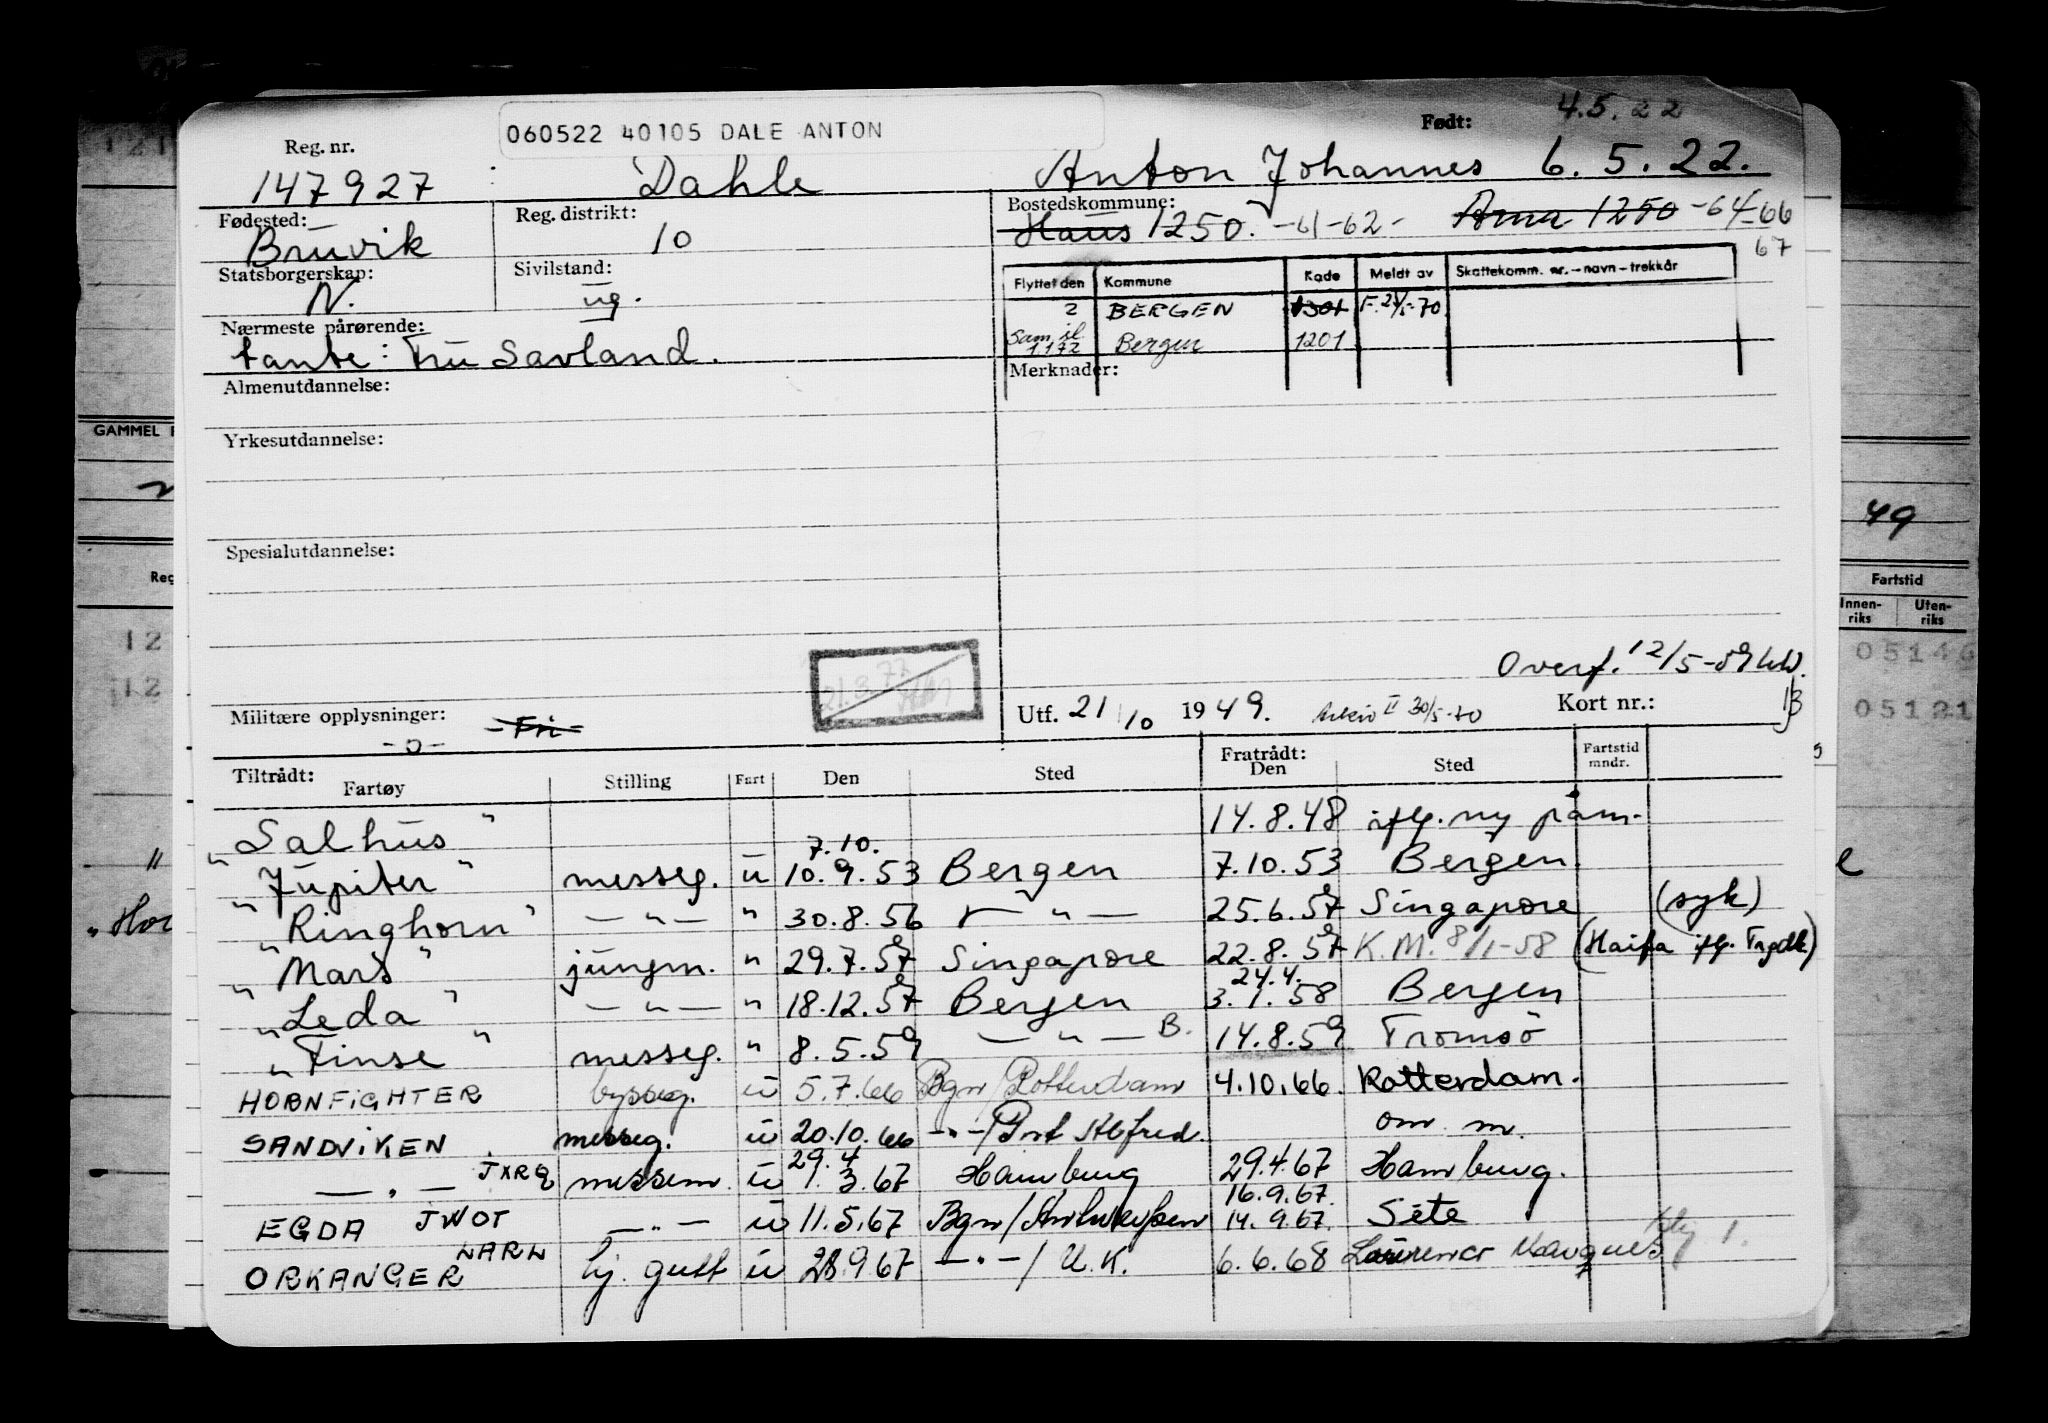 Reg. nr. 060522 40105 DALE ANTON Født: 4.5.22
147927 Dahle Anton Johannes 6.5.22.
Fødested: Reg. distrikt: Bostedskommune:
Bruvik 10 Haus 1250. -61-62- Arna 1250 -64-66
67
Statsborgerskap: Sivilstand:
N. ug.
Flyttet den Kommune Kode Meldt av Skattekomm. nr. - navn - trekkår
2 BERGEN 1301
1172 Bergen 1201
Nærmeste pårørende:
tante: Fru Savland.
Almenutdannelse: Merknader:
Yrkesutdannelse:
Spesialutdannelse:
Overf. 12/5-59
Militære opplysninger: Fri Utf. 21/10 1949. Arkiv II 30/5-70 Kort nr.:
-o-
Tiltrådt: Fratrådt:
Fartøy Stilling Fart Den Sted Den Sted Fartstid mndr.
"Salhus" 14.8.48 iflg. ny påm.
7.10.
"Jupiter" messeg. u 10.9.53 Bergen 7.10.53 Bergen
"Ringhorn" — " — " 30.8.56 — " — 25.6.57 Singapore (syk)
"Mars" jungm. " 29.7.57 Singapore 22.8.57 K.M. 8/1-58 (Haifa iflg.
24.4.
"Leda" — " — " 18.12.57 Bergen 3.1.58 Bergen
"Finse" messeg. " 8.5.59 — " — B. 14.8.59 Tromsö
HORNFIGHTER bysseg. u 5.7.66 Bgn/Rotterdam 4.10.66. Rotterdam.
SANDVIKEN messeg. u 20.10.66 -"-/Port Alfred. om. m.
29.4
— " — JXRQ messem. u 1.3.67 Hamburg 29.4.67 Hamburg.
16.9.67.
EGDA JWOT — " — u 11.5.67 Bgn/Antwerpen 14.9.67. Séte
ORKANGER LARL hj. gutt u 28.9.67 -"-/U.K. 6.6.68 Lourenco Marques
GAMMEL
49
Reg
Fartstid
Innenriks Utenriks
12 05146
12 05121
"Hor